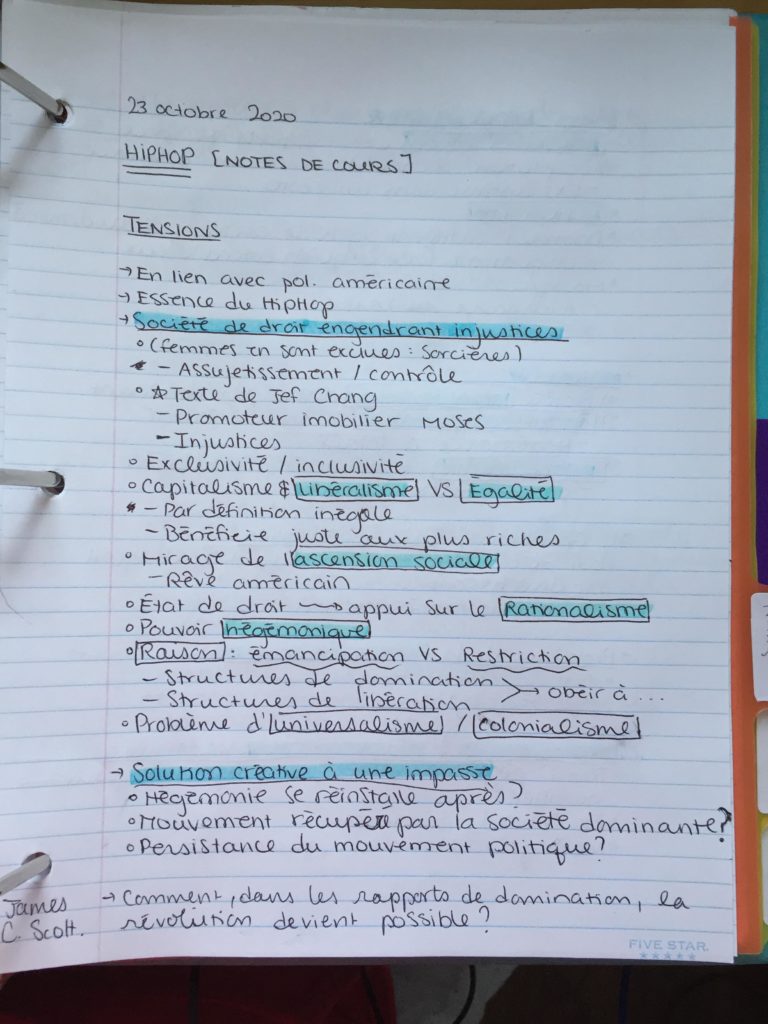 23 octobre 2020
HIPHOP [NOTES DE COURS]
TENSIONS
→ En lien avec pol. américaine
→ Essence du HipHop
→ Société de droit engendrant injustices
° (femmes en sont exclues : sorcières)
* – Assujetissement / contrôle
° ☆ Texte de Jef Chang
– Promoteur imobilier MOSES
– Injustices
° Exclusivité / inclusivité
° Capitalisme & libéralisme VS Égalité
* – Par définition inégale
– Bénéficie juste aux plus riches
° Mirage de l'ascension sociale
– Rêve américain
° État de droit → appui sur le Rationalisme
° Pouvoir hégémonique
° Raison : émancipation VS Restriction
– Structures de domination
– Structures de libération > → obéir à ...
° Problème d'universalisme / colonialisme
→ Solution créative à une impasse
° Hégémonie se réinstalle après?
° Mouvement récupéré par la société dominante?
° Persistance du mouvement politique?
→ Comment, dans les rapports de domination, la
révolution devient possible?
James
C. Scott.
FIVE STAR.
★★★★★